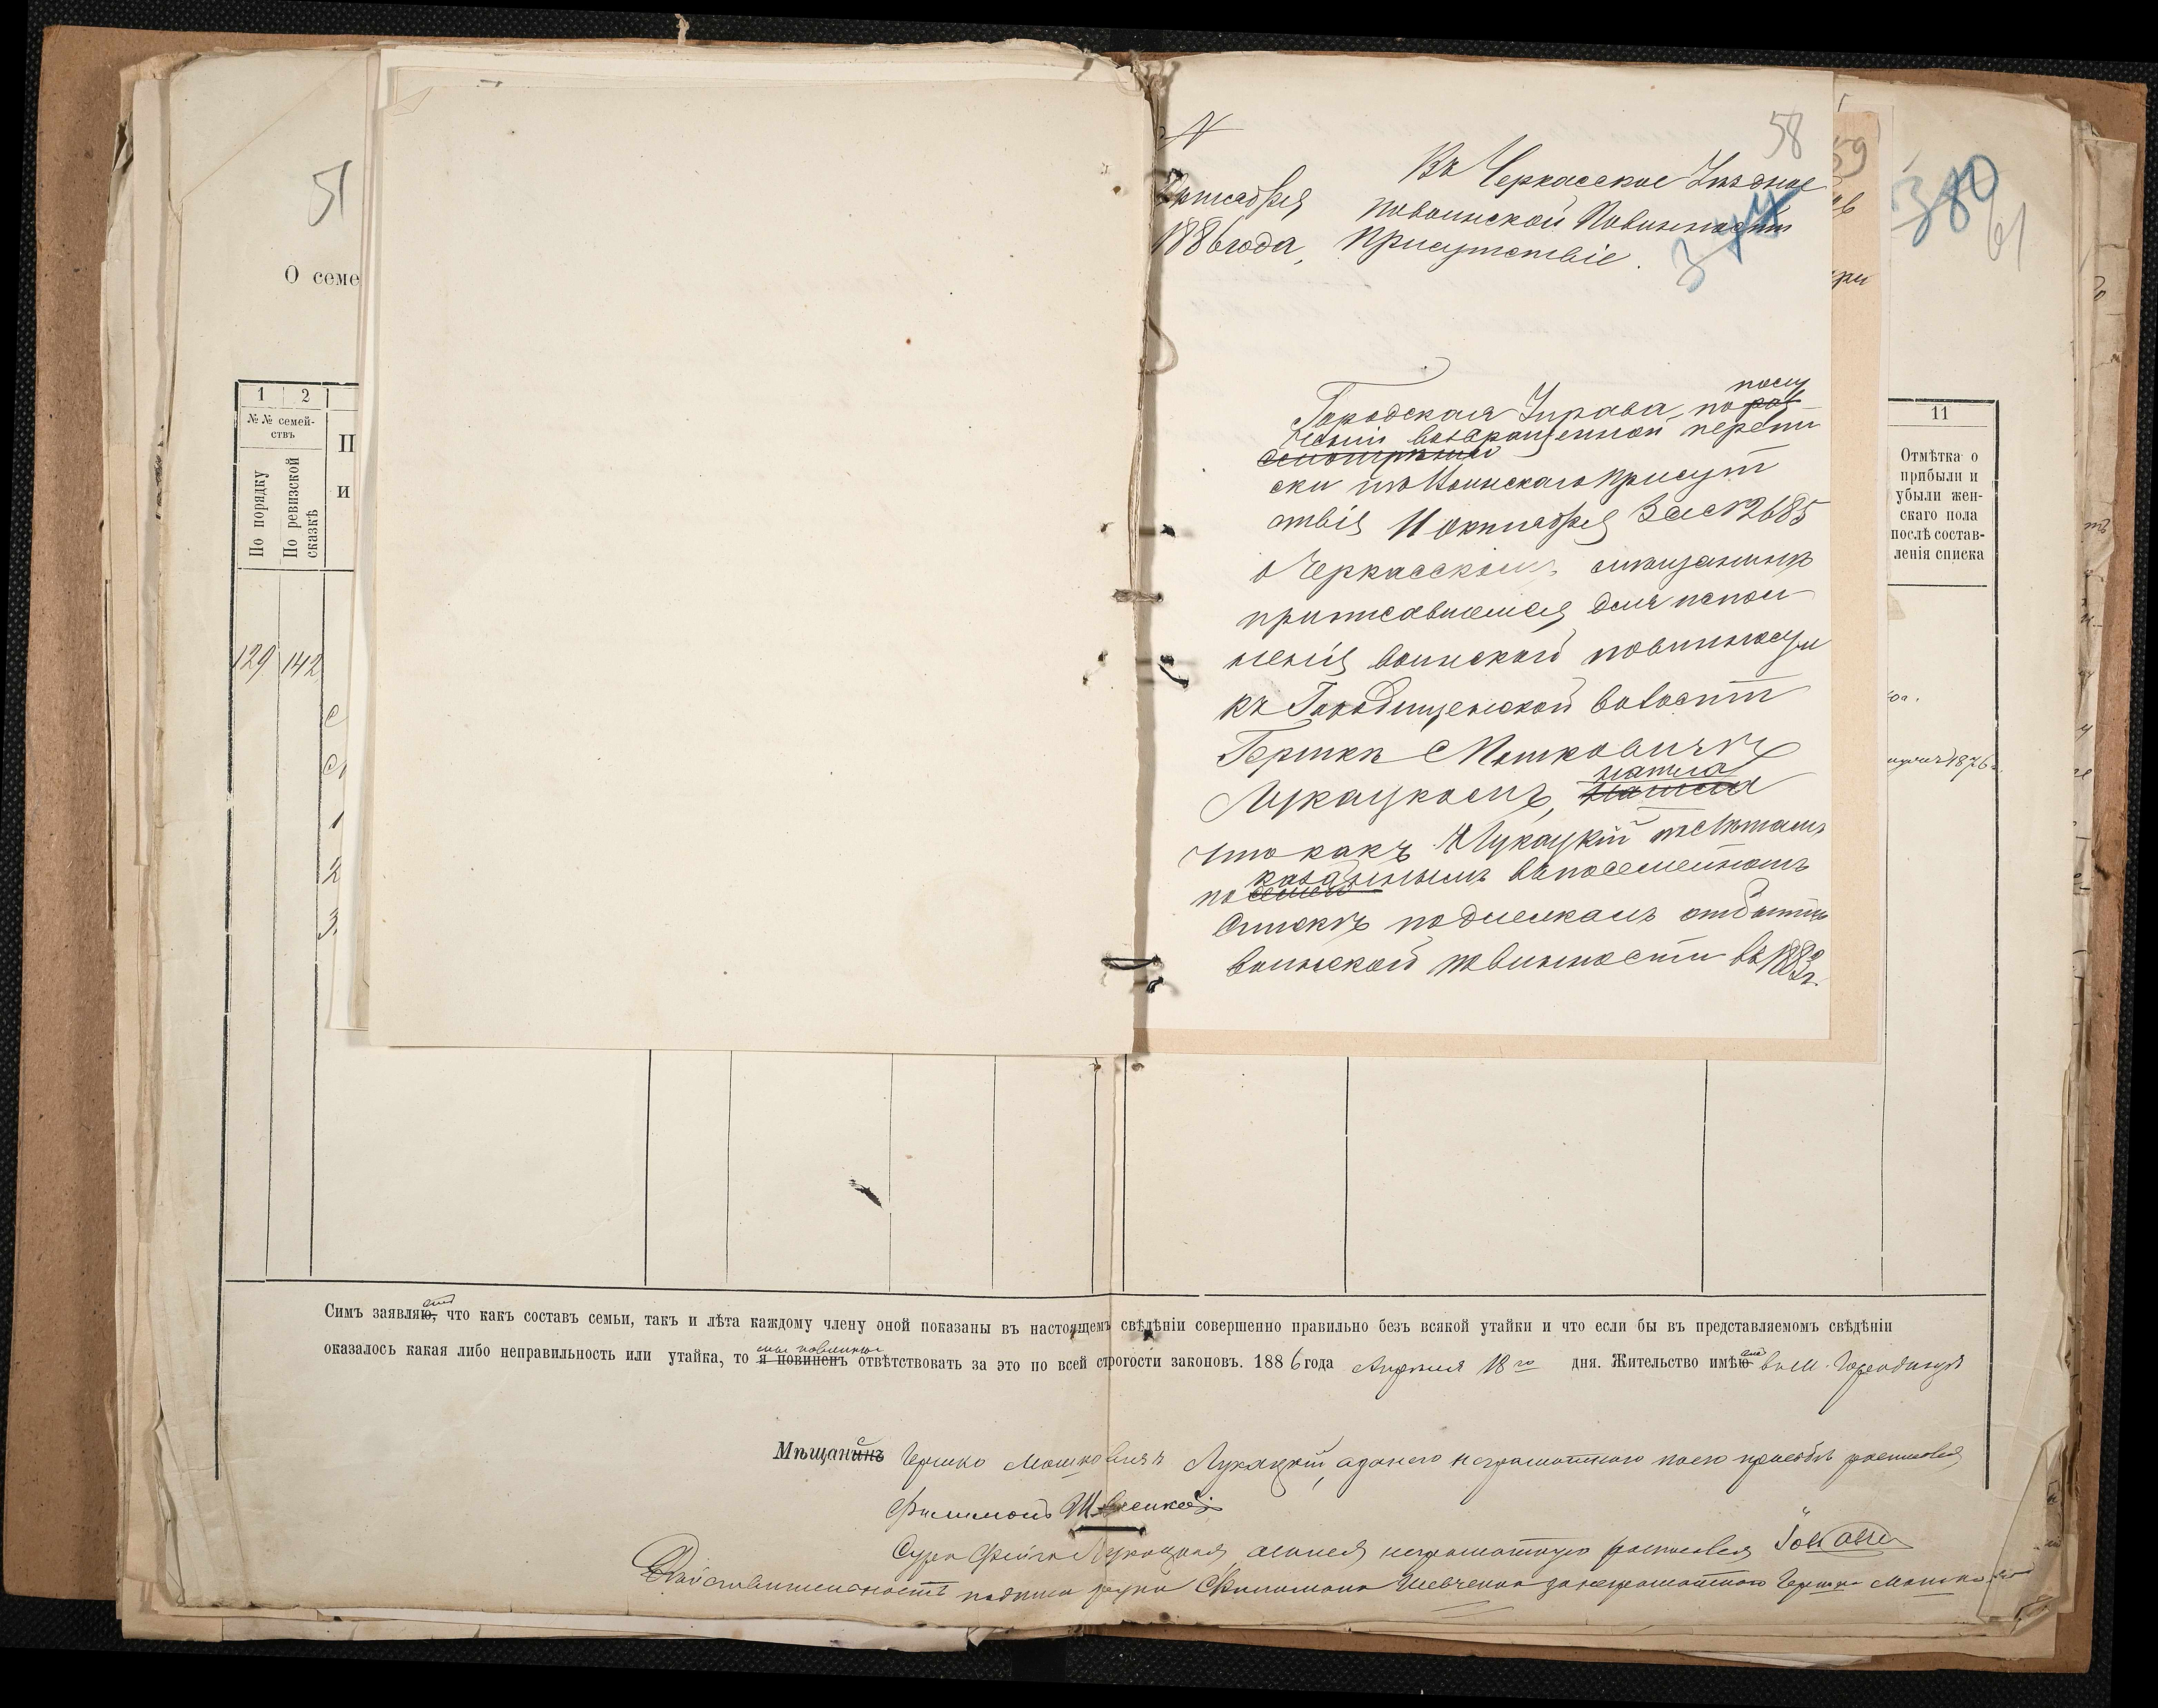 51
О семе
1 2
№№ семей-
ствъ
По порядку
По ревизской
сказкѣ
П
и
129 142
1
2
3
58
N
Октября
1886 года,
Въ Черкасское Уѣздное
по воинской Повинности
Присутствіе.
374
Городская Управа, по
возвращенной перепи
ски изъ Воинскаго Присут
ствія 11 Октября за № 2685
о Черкасскомъ мѣщанинѣ
приписавшемся для испол
ненія воинской повинности
къ Городищенской волости
Гершкѣ Мошковичѣ
нашла
Лукацкомъ,
что какъ Лукацкій по лѣтамъ
показаннымъ въ посемейномъ
спискѣ подлежалъ отбытію
воинской повинности въ
59
380
61
11
Отмѣтка о
прибыли и
убыли жен-
скаго пола
послѣ состав-
ленія списка
1876
Симъ заявляю, что какъ составъ семьи, такъ и лѣта каждому члену оной показаны въ настоящемъ свѣдѣніи совершенно правильно безъ всякой утайки и что если бы въ представляемомъ свѣдѣніи
мы повинны
оказалось какая либо неправильность или утайка, то я повиненъ отвѣтствовать за это по всей строгости законовъ. 1886 года Апрѣля 18го дня. Жительство имѣю въ м. Городищѣ
Мѣщанинъ Гершко Мошковичъ Лукацкій, а за него неграмотнаго по его просьбѣ росписался
Филимонъ Шевченко
Сура Фейга Лукацкая, а за нея неграмотную росписался
Дѣйствительность подписи руки Филимона Шевченка за неграмотнаго Гершка